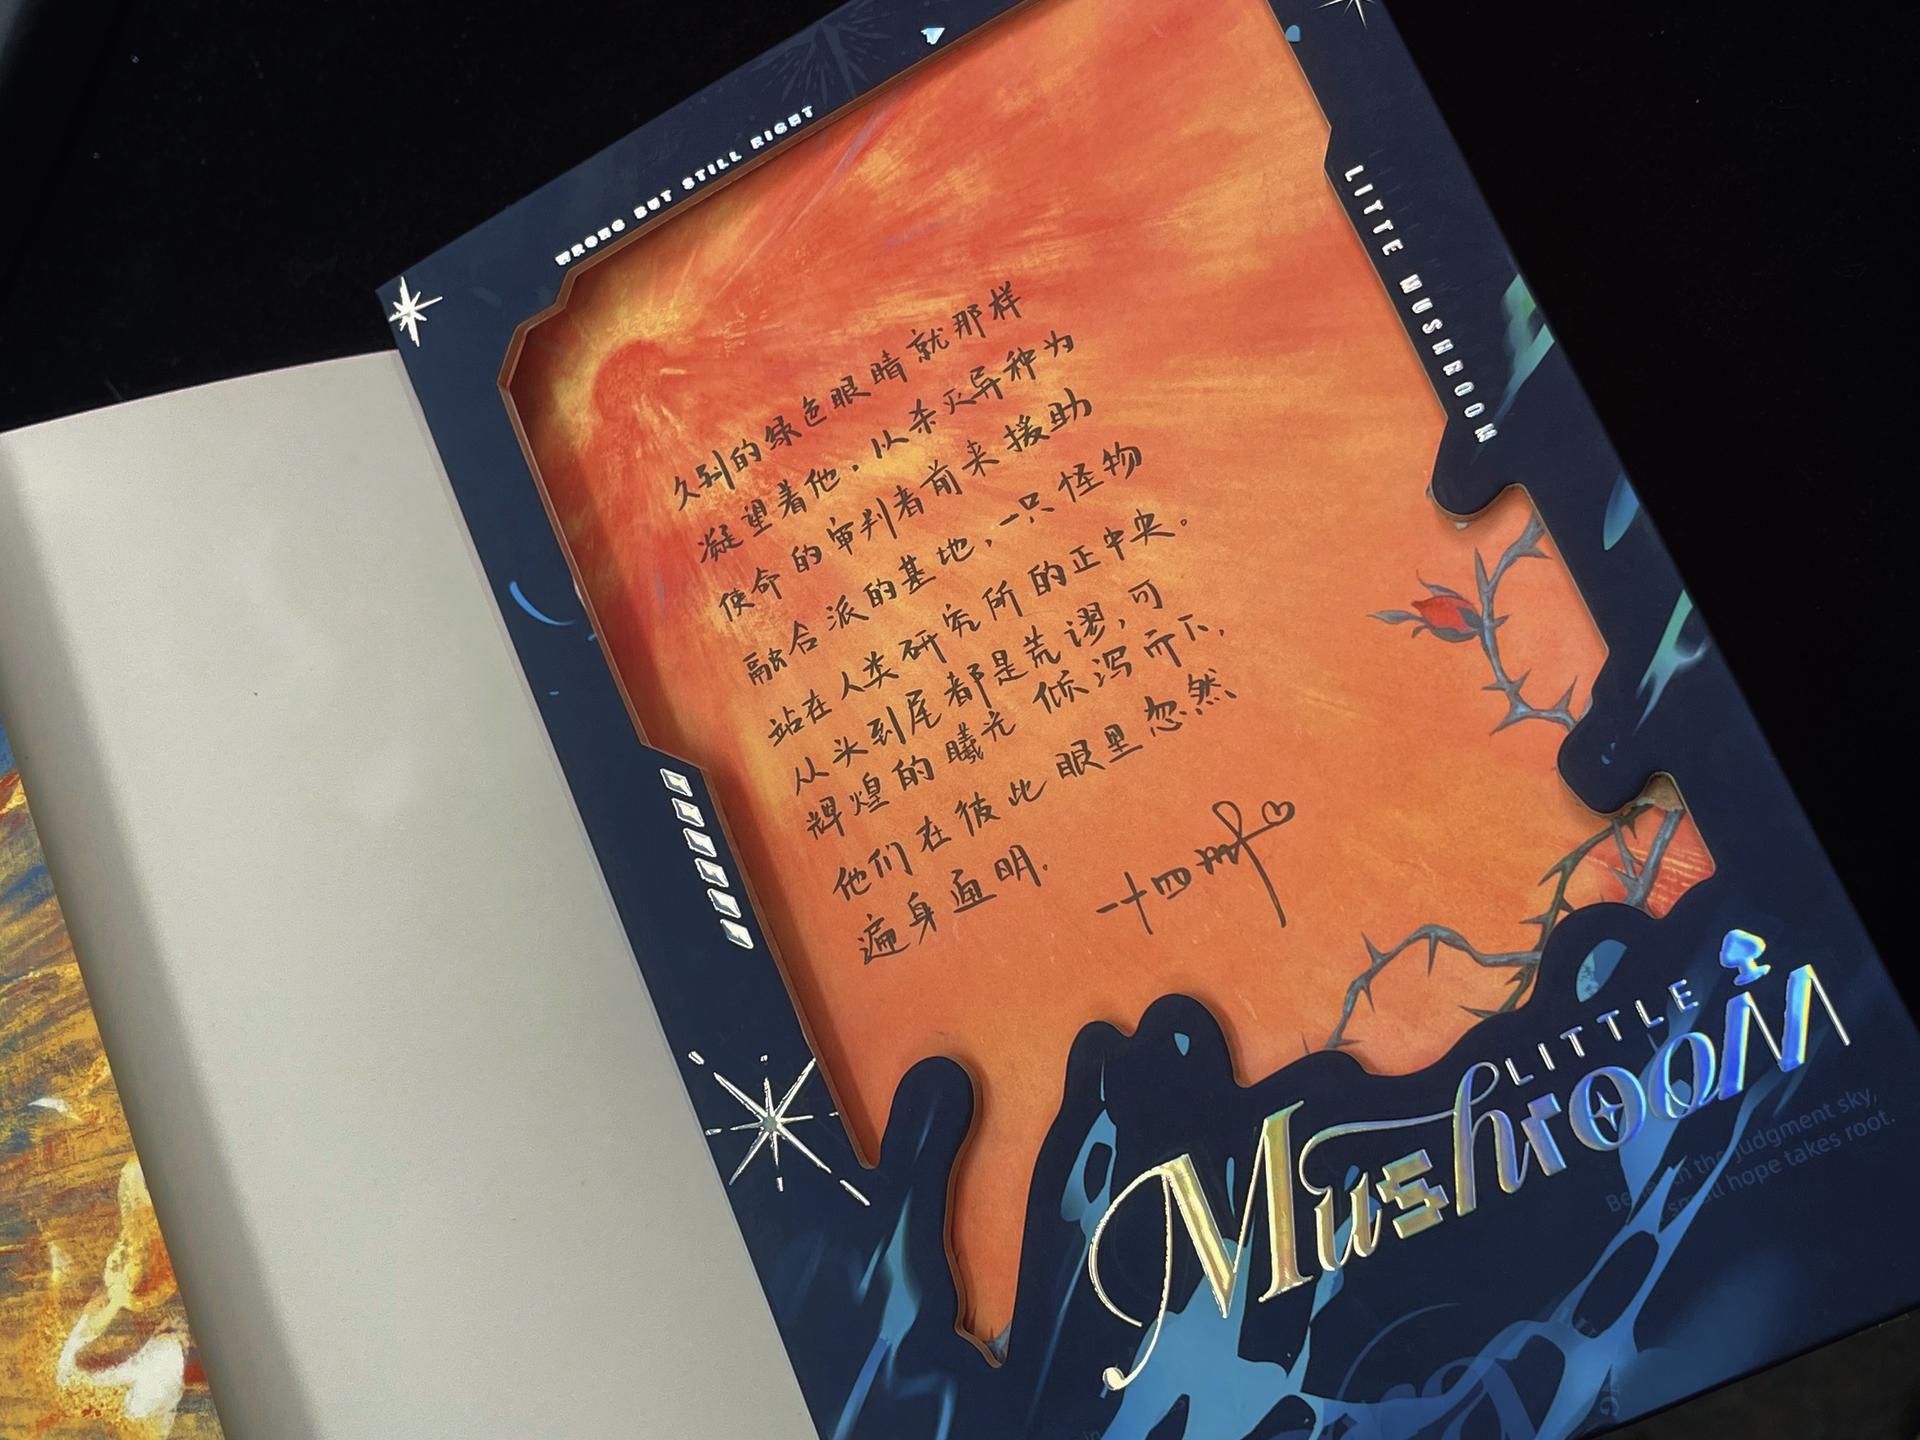 WRONG BUT STILL RIGHT
LITTE MUSHROOM
久别的绿色眼睛就那样
凝望着他,以杀灭异种为
使命的审判者前来援助
融合派的基地,一只怪物
站在人类研究所的正中央。
从头到尾都是荒谬,可
辉煌的曦光倾泻而下,
他们在彼此眼里忽然
遍身通明.
一十四州
LITTLE
MushrooM
Beneath the judgment sky,
small hope takes root.